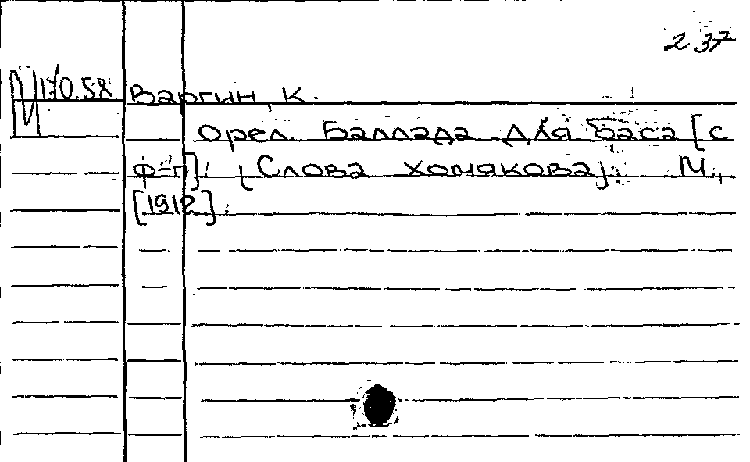 237
М 170.58 Варгин, К.
Орел. Баллада для баса [с
ф-п]. [Слова Хомякова]. М.,
[1912].